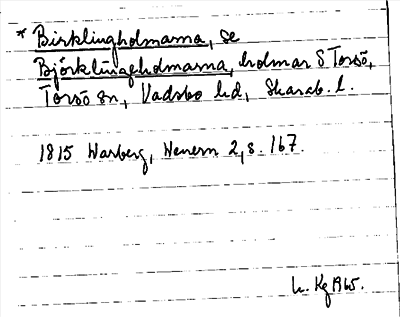 * Birklingholmarna, se
Björklingeholmarna, holmar S Torsö,
Torsö sn, Vadsbo hd, Skarab. l.
1815 Warberg, Wenern 2, s. 167.
h. Kg 1965.